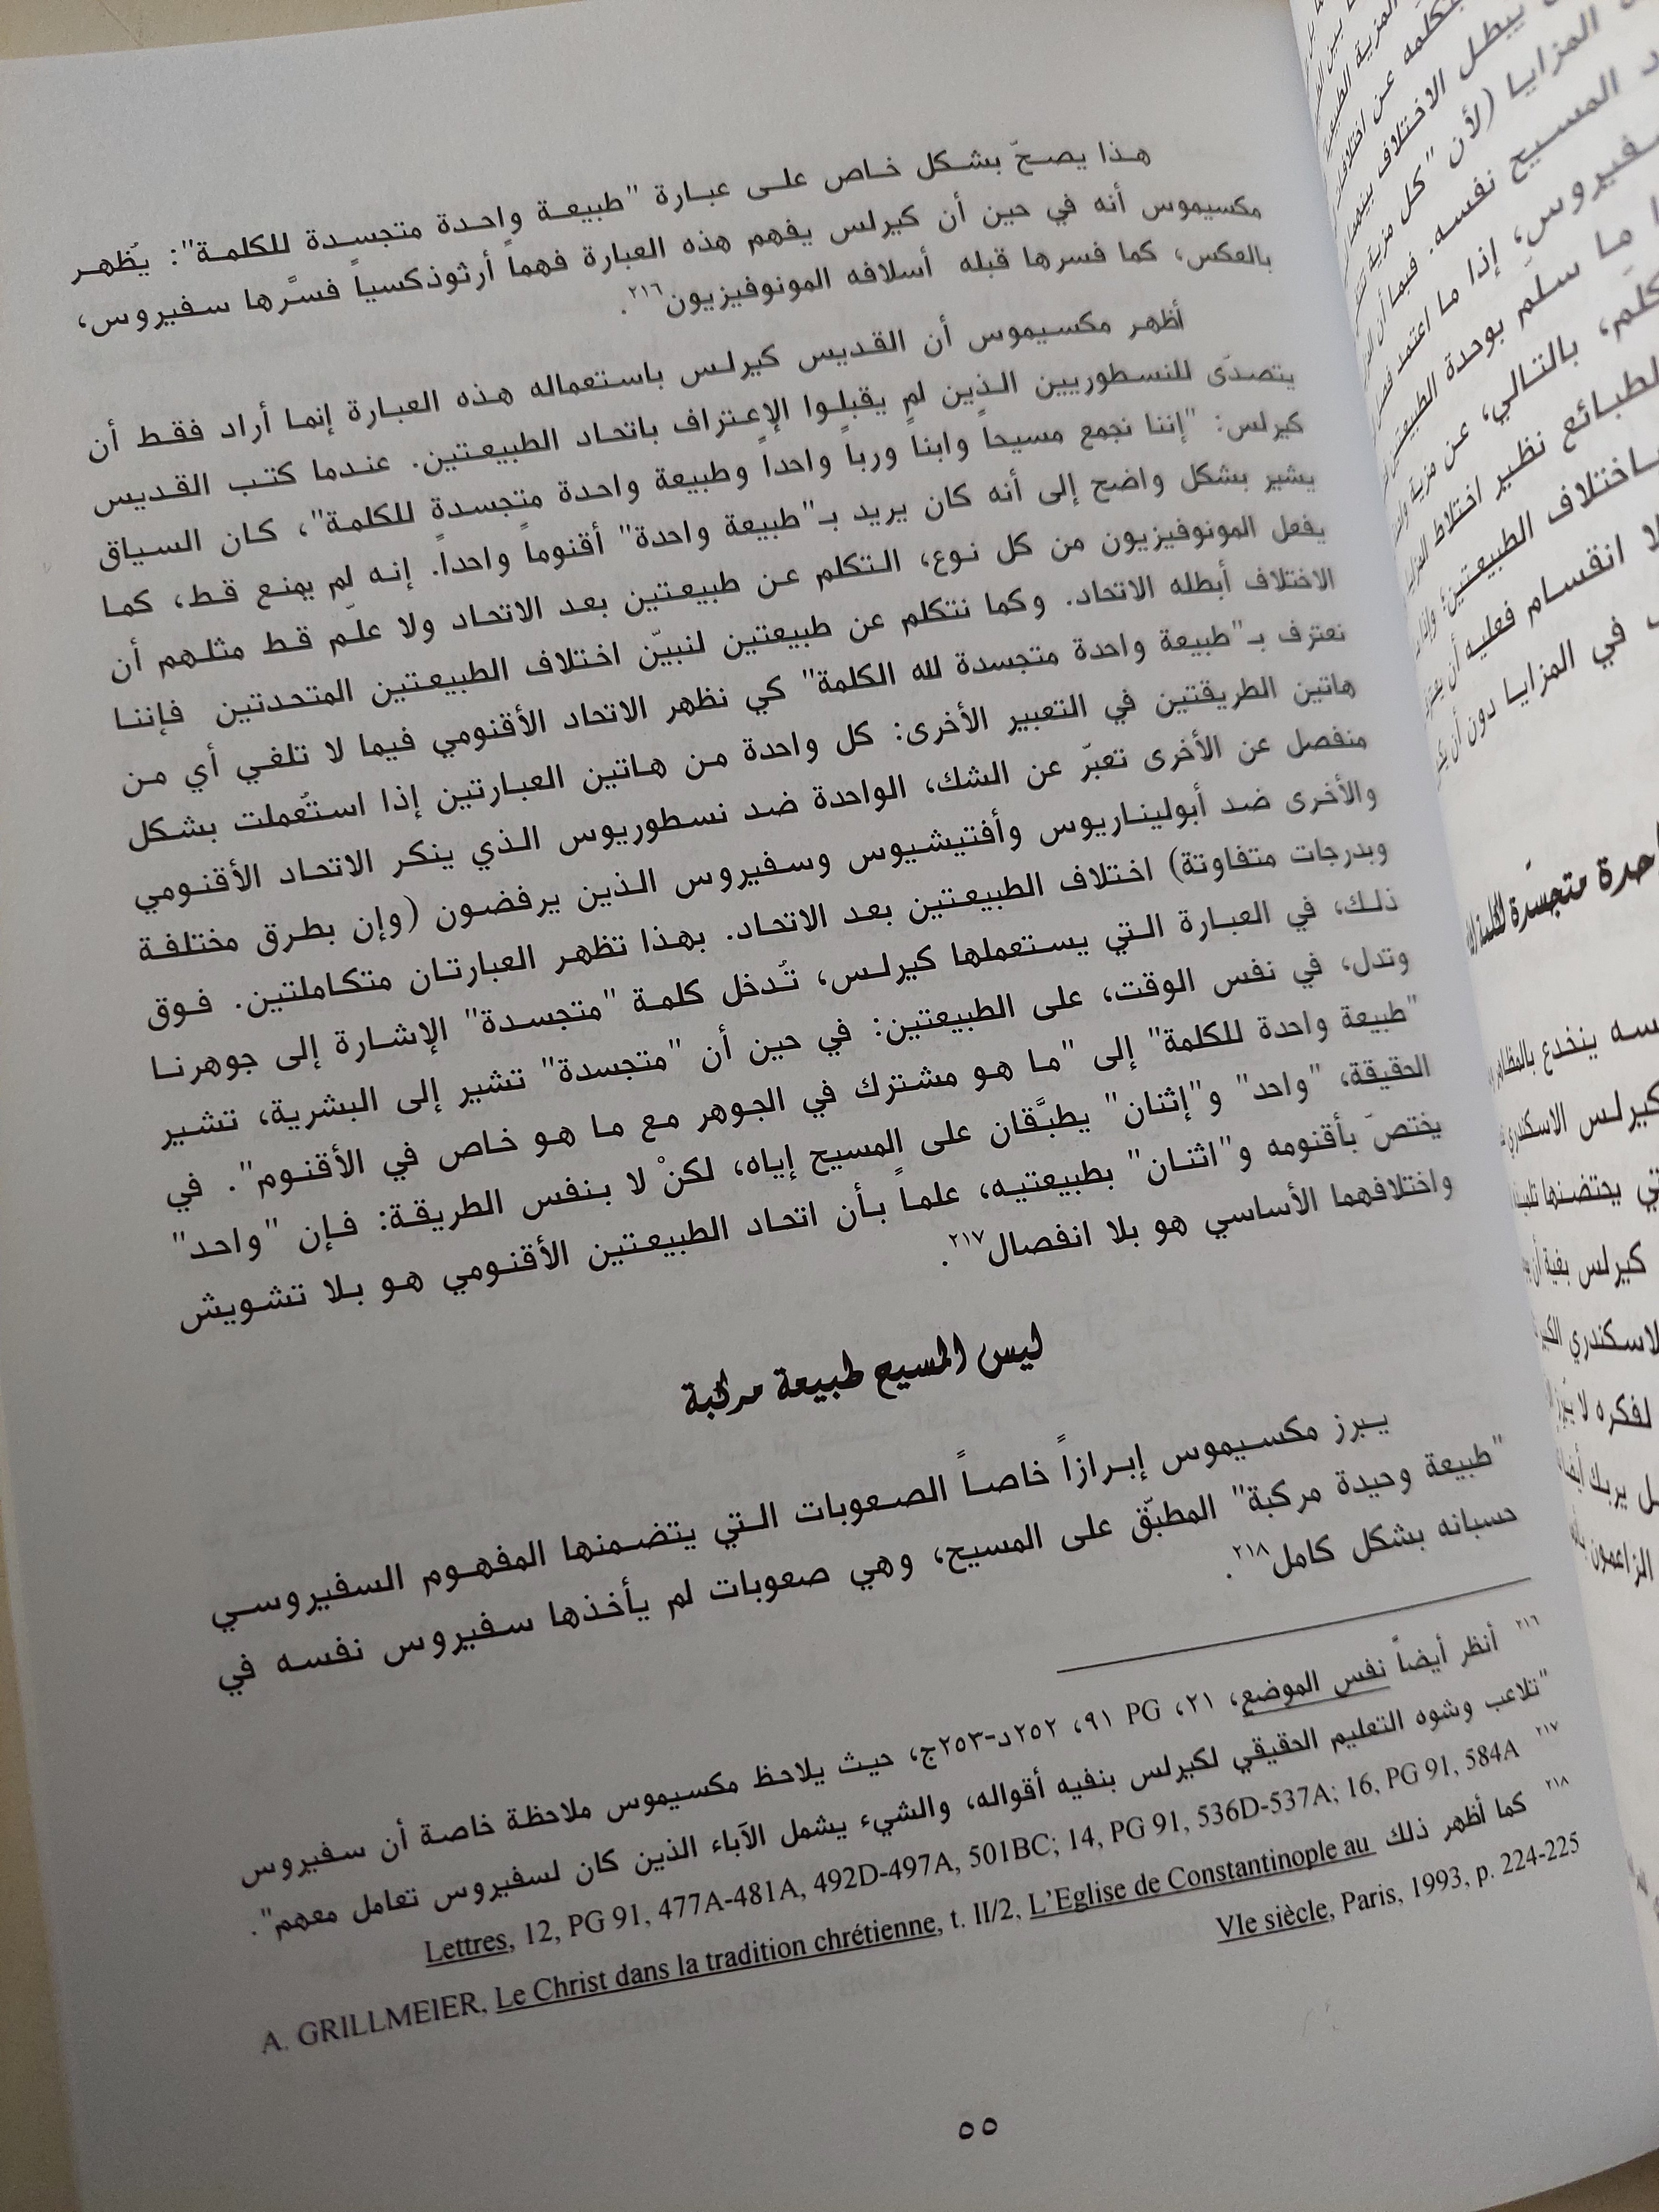 هذا يصحّ بشكل خاص على عبارة "طبيعة واحدة متجسدة للكلمة": يُظهر
مكسيموس أنه في حين أن كيرلس يفهم هذه العبارة فهماً أرثوذكسياً فسَّرها سفيروس،
بالعكس، كما فسرها قبله أسلافه المونوفيزيون٢١٦.
أظهر مكسيموس أن القديس كيرلس باستعماله هذه العبارة إنما أراد فقط أن
يتصدّى للنسطوريين الذين لم يقبلوا الإعتراف باتحاد الطبيعتين. عندما كتب القديس
كيرلس: "إننا نجمع مسيحاً وابناً ورباً واحداً وطبيعة واحدة متجسدة للكلمة"، كان السياق
يشير بشكل واضح إلى أنه كان يريد بـ"طبيعة واحدة" أقنوماً واحداً. إنه لم يمنع قط، كما
يفعل المونوفيزيون من كل نوع، التكلم عن طبيعتين بعد الاتحاد ولا علّم قط مثلهم أن
الاختلاف أبطله الاتحاد. وكما نتكلم عن طبيعتين لنبيّن اختلاف الطبيعتين المتحدتين فإننا
نعترف بـ"طبيعة واحدة متجسدة لله الكلمة" كي نظهر الاتحاد الأقنومي فيما لا تلغي أي من
هاتين الطريقتين في التعبير الأخرى: كل واحدة من هاتين العبارتين إذا استُعملت بشكل
منفصل عن الأخرى تعبّر عن الشك، الواحدة ضد نسطوريوس الذي ينكر الاتحاد الأقنومي
والأخرى ضد أبوليناريوس وأفتيشيوس وسفيروس الذين يرفضون (وإن بطرق مختلفة
وبدرجات متفاوتة) اختلاف الطبيعتين بعد الاتحاد. بهذا تظهر العبارتان متكاملتين. فوق
ذلك، في العبارة التي يستعملها كيرلس، تُدخل كلمة "متجسدة" الإشارة إلى جوهرنا
وتدل، في نفس الوقت، على الطبيعتين: في حين أن "متجسدة" تشير إلى البشرية، تشير
"طبيعة واحدة للكلمة" إلى "ما هو مشترك في الجوهر مع ما هو خاص في الأقنوم". في
الحقيقة، "واحد" و"إثنان" يطبَّقان على المسيح إياه، لكنْ لا بنفس الطريقة: فإن "واحد"
يختصّ بأقنومه و"اثنان" بطبيعتيه، علماً بأن اتحاد الطبيعتين الأقنومي هو بلا تشويش
واختلافهما الأساسي هو بلا انفصال٢١٧.
ليس المسيح طبيعة مركبة
يبرز مكسيموس إبرازاً خاصاً الصعوبات التي يتضمنها المفهوم السفيروسي
"طبيعة وحيدة مركبة" المطبّق على المسيح، وهي صعوبات لم يأخذها سفيروس نفسه في
حسبانه بشكل كامل٢١٨.
٢١٦ أنظر أيضاً نفس الموضع، ٢١، PG ٩١، ٢٥٢د-٢٥٣ج، حيث يلاحظ مكسيموس ملاحظة خاصة أن سفيروس
"تلاعب وشوه التعليم الحقيقي لكيرلس بنفيه أقواله، والشيء يشمل الآباء الذين كان لسفيروس تعامل معهم".
٢١٧ Lettres, 12, PG 91, 477A-481A, 492D-497A, 501BC; 14, PG 91, 536D-537A; 16, PG 91, 584A
٢١٨ كما أظهر ذلك A. GRILLMEIER, Le Christ dans la tradition chrétienne, t. II/2, L'Eglise de Constantinople au
VIe siècle, Paris, 1993, p. 224-225
٥٥